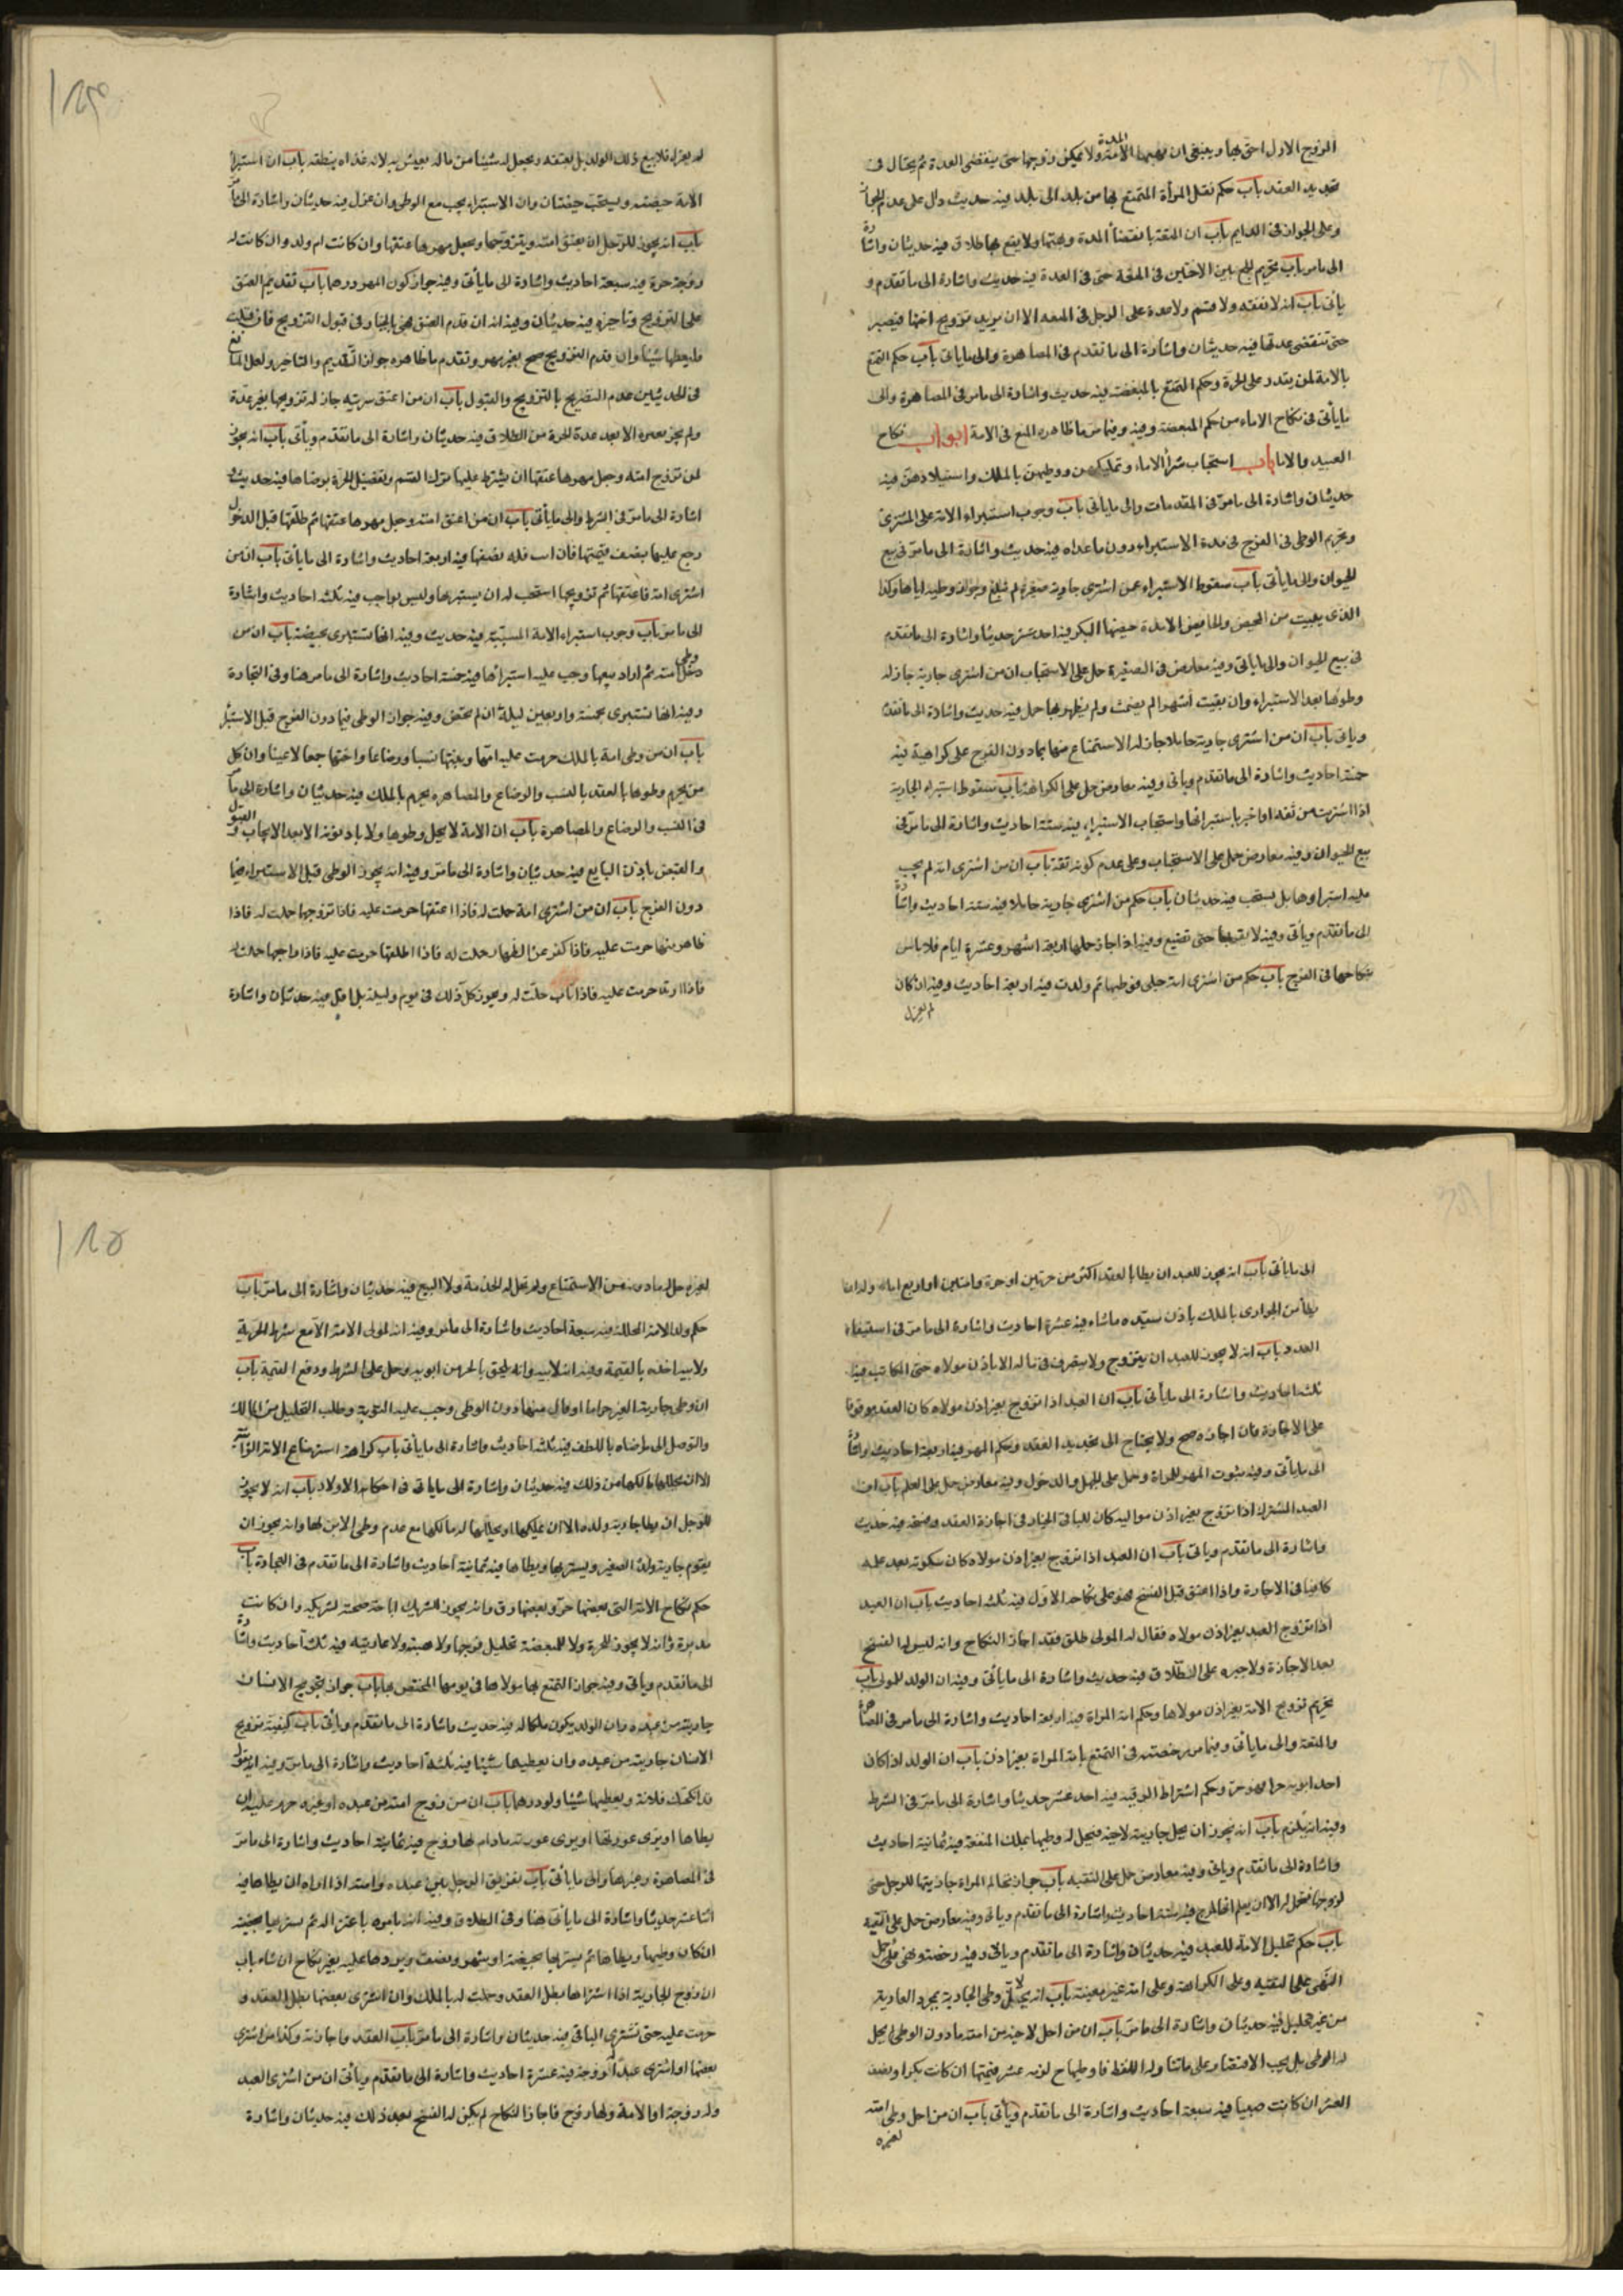 الزوج الاول احق بها وينبغى ان يهبها المدة ولا يمكن زوجها حتى ينقضى العدة ثم يحتال فى
تجديد العقد باب حكم نقل المرأة المتمتع بها من بلد الى بلد فيه حديث دال على عدم الجواز
وعلى الجواز فى الدايم باب ان المتعة بانقضاء المدة وبهبتها ولا يقع بها طلاق فيه حديثان واشارة
الى ما مر باب تحريم الجمع بين الاختين فى المتعة حتى فى العدة فيه حديث واشارة الى ما تقدم و
يأتى باب انه لا نفقه ولا قسم ولا عدة على الرجل فى المتعه الا ان يريد تزويج اختها فيصبر
حتى تنقضى عدتها فيه حديثان واشارة الى ما تقدم فى المصاهرة والى ما ياتى باب حكم التمتع
بالامة لمن يقدر على الحرة وحكم التمتع بالمبعضة فيه حديث واشارة الى ما مر فى المصاهرة والى
ما يأتى فى نكاح الاماء من حكم المبعضة وفيه وفيما مر ما ظاهره المنع فى الامة ابواب نكاح
العبيد والاماء باب استحباب شرأ الاماء وتمليكهن ووطيهن بالملك واستيلادهن فيه
حديثان واشارة الى ما مر فى المقدمات والى ما ياتى باب وجوب استبراء الامة على المشترى
وتحريم الوطى فى الفرج فى مدة الاستبراء دون ما عداه فيه حديث واشارة الى ما مر فى بيع
الحيوان والى ما يأتى باب سقوط الاستبراء عمن اشترى جارية صغيرة لم تبلغ وجواز وطيه اياها وكذا
التى يئست من المحيض والحايض الا مدة حيضها البكر فيه احد عشر حديثا واشارة الى ما تقدم
فى بيع الحيوان والى ما يأتى وفيه معارض فى الصغيرة حمل على الاستحباب ان من اشترى جارية جاز له
وطوها بعد الاستبراء وان بقيت اشهرا لم يطمث ولم يظهر بها حمل فيه حديث واشارة الى ما تقدم
وياتى باب ان من اشترى جارية حاملا جاز له الاستمتاع منها بما دون الفرج على كراهية فيه
خمسة احاديث واشارة الى ما تقدم وياتى وفيه معارض حمل على الكراهة باب سقوط استبراء الجارية
اذا اشتريت من ثقة او اخبر باستبرائها واستحباب الاستبراء فيه ستة احاديث واشارة الى ما مر فى
بيع الحيوان وفيه معارض حمل على الاستحباب وعلى عدم كونه ثقة باب ان من اشترى امة لم يجب
عليه استبراوها بل يستحب فيه حديثان باب حكم من اشترى جارية حاملا فيه ستة احاديث واشارة
الى ما تقدم ويأتى وفيه لا تقربها حتى تضع وفيه اذا جاز حملها اربعة اشهر وعشرة ايام فلا باس
بنكاحها فى الفرج باب حكم من اشترى امة حبلى فوطيها ثم ولدت فيه اربعة احاديث وفيه ان كان
لم يعزل
لم يعزل فلا يبيع ذلك الولد بل يعتقه ويجعل له شيئا من ماله يعيش به لانه غذاه بنطفته باب ان استبرأ
الامة حيضة ويستحب حيضتان وان الاستبراء يجب مع الوطى وان عزل فيه حديثان واشارة الى ما مر
باب انه يجوز للرجل ان يعتق امته ويتزوجها ويجعل مهرها عتقها وان كانت ام ولد وان كانت له
زوجة حرة فيه سبعة احاديث واشارة الى ما يأتى وفيه جواز كون المهر درهما باب تقديم العتق
على التزويج وتاخيره فيه حديثان وفيه انه ان قدم العتق فهى بالخيار فى قبول التزويج فان قبلت
فليعطها شيئا وان قدم التزويج صح بغير مهر وتقدم ما ظاهره جواز التقديم والتاخير ولعل المانع
فى الحديثين عدم التصريح بالتزويج والقبول باب ان من اعتق سريته جاز له تزويجها بغير عدة
ولم يجز لغيره الا بعد عدة الحرة من الطلاق فيه حديثان واشارة الى ما تقدم ويأتى باب انه يجوز
لمن تزوج امته وجعل مهرها عتقها ان يشترط عليها ترك القسم وتفضيل الحرة برضاها فيه حديث و
اشارة الى ما مر فى الشرط والى ما يأتى باب ان من اعتق امته وجعل مهرها عتقها ثم طلقها قبل الدخول
رجع عليها بنصف قيمتها فان ابت فله نصفها فيه اربعة احاديث واشارة الى ما يأتى باب ان من
اشترى امة فاعتقها ثم تزويجها استحب له ان يستبريها وليس بواجب فيه ثلثه احاديث واشارة
الى ما مر باب وجوب استبراء الامة المسبية فيه حديث وفيه انها تستبرى بحيضة باب ان من
وطى امته ثم اراد بيعها وجب عليه استبرأها فيه خمسة احاديث واشارة الى ما مر هنا وفى التجارة
وفيه انها تستبرى بخمسة واربعين ليلة ان لم تحض وفيه جواز الوطى فيما دون الفرج قبل الاستبرا
باب ان من وطى امة بالملك حرمت عليه امها وبنتها نسبا ورضاعا واختها جمعا لا عينا وان كل
من يحرم وطوها بالعقد بالنسب والرضاع والمصاهره يحرم بالملك فيه حديثان واشارة الى ما مر
فى النسب والرضاع والمصاهرة باب ان الامة لا يحل وطوها ولا بادنه الا بعد الايجاب والقبول
والقبض باذن البايع فيه حديثان واشارة الى ما مر وفيه انه يجوز الوطى قبل الاستبراء فيما
دون الفرج باب ان من اشترى امة حلت له فاذا اعتقها حرمت عليه فاذا تزوجها حلت له فاذا
ظاهر منها حرمت عليه فاذا كفر عن الظهار حلت له فاذا طلقها حرمت عليه فاذا راجعها حلت له
فاذا ارتد حرمت عليه فاذا تاب حلت له ويجوز كل ذلك فى يوم وليلة بل اقل فيه حديثان واشارة
الى ما يأتى باب انه يجوز للعبد ان يطا بالعقد اكثر من حرتين او حرة وامتين او اربع اماء وله ان
يطأ من الجوارى بالملك باذن سيده ما شاء فيه عشرة احاديث واشارة الى ما مر فى استيفاء
العدد باب انه لا يجوز للعبد ان يتزوج ولا يتصرف فى ماله الا باذن مولاه حتى المكاتب فيه
ثلثه احاديث واشارة الى ما يأتى باب ان العبد اذا تزوج بغير اذن مولاه كان العقد موقوفا
على الاجازة فان اجازه صح ولا يحتاج الى تجديد العقد وحكم المهر فيه اربعة احاديث واشارة
الى ما يأتى وفيه ثبوت المهر للمراة وحمل على الجهل والدخول وفيه معارض حمل على العلم باب ان
العبد المشترك اذا تزوج بغير اذن مواليه كان للباقى الخيار فى اجازة العقد وفسخه فيه حديث
واشارة الى ما تقدم وياتى باب ان العبد اذا تزوج بغير اذن مولاه كان سكوته بعد علمه
كافيا فى الاجازة واذا اعتق قبل الفسخ فهو على نكاحه الاول فيه ثلثه احاديث باب ان العبد
اذا تزوج العبد بغير اذن مولاه فقال له المولى طلق فقد اجاز النكاح وانه ليس له الفسخ
بعد الاجازة ولا جبره على الطلاق فيه حديث واشارة الى ما يأتى وفيه ان الولد للمولى باب
تحريم تزويج الامة بغير اذن مولاها وحكم امة المراة فيه اربعة احاديث واشارة الى ما مر فى المصاهرة
والمتعة والى ما يأتى وفيما مر رخصة فى التمتع بامة المراة بغير اذن باب ان الولد اذا كان
احد ابويه حرا فهو حر وحكم اشتراط الرقية فيه احد عشر حديثا واشارة الى ما مر فى الشرط
وفيه انه يلزم باب انه يجوز ان يحل جاريته لاخيه فيحل له وطيها بملك المنفعة فيه ثمانية احاديث
واشارة الى ما تقدم وياتى وفيه معارض حمل على التقيه باب جواز تحليل المراة جاريتها للرجل حتى
لزوجها فتحل له الا ان يعلم انها تمزح فيه ستة احاديث واشارة الى ما تقدم وياتى وفيه معارض حمل على التقيه
باب حكم تحليل الامة للعبد فيه حديثان واشارة الى ما تقدم وياتى وفيه رخصة ونهى حمل
النهى على التقيه وعلى الكراهة وعلى امة غير معينة باب انه لا يحل وطى الجارية بمجرد العارية
من غير تحليل فيه حديثان واشارة الى ما مر باب ان من احل لاخيه من امته ما دون الوطى لم يحل
له الوطى بل يجب الاقتصار على ما تناوله اللفظ فان وطيها ح لزمه عشر قيمتها ان كانت بكرا ونصف
العشر ان كانت ثيبا فيه سبعة احاديث واشارة الى ما تقدم ويأتى باب ان من احل وطى امته
لغيره
لغيره حل له ما دونه من الاستمتاع ولم تحل له الخدمة ولا البيع فيه حديثان واشارة الى ما مر باب
حكم ولد الامة المحللة فيه سبعة احاديث واشارة الى ما مر وفيه انه لمولى الامة الا مع شرط الحرية
ولابيه اخذه بالقيمة وفيه انه لابيه وانه يلحق بالحر من ابويه وحمل على الشرط ودفع القيمة باب
ان وطى جارية الغير حراما او قال منها دون الوطى وجب عليه التوبة وطلب التحليل من المالك
والتوصل الى رضاه باللطف فيه ثلثه احاديث واشارة الى ما يأتى باب كراهة استرضاع الامة الزانية
الا ان يحللها مالكها من ذلك فيه حديثان واشارة الى ما ياتى فى احكام الاولاد باب انه لا يجوز
للرجل ان يطا جارية ولده الا ان يملكها او يحللها له مالكها مع عدم وطى الابن لها وانه يجوز ان
يقوم جارية ولده الصغير ويشتريها ويطاها فيه ثمانية احاديث واشارة الى ما تقدم فى التجارة باب
حكم نكاح الامة التى بعضها حر وبعضها رق وانه يجوز للشريك اباحة حصته لشريكه وان كانت
مدبرة وانه لا يجوز للحرة ولا للمبعضة تحليل فرجها ولا هبته ولا عاريته فيه ثلثه احاديث واشارة
الى ما تقدم وياتى وفيه جواز التمتع بها مولاها فى يومها المختص بها باب جواز تزويج الانسان
جاريته من عبده وان الولد يكون ملكا له فيه حديث واشارة الى ما تقدم ويأتى باب كيفية تزويج
الانسان جاريته من عبده وان يعطيها شيئا فيه ثلثة احاديث واشارة الى ما مر وفيه انه يقول
قد انكحتك فلانة ويعطيها شيئا ولو درهما باب ان من زوج امته من عبده او غيره حرم عليه ان
يطاها او يرى عورتها او يرى عورته ما دام لها زوج فيه ثمانية احاديث واشارة الى ما مر
فى المصاهرة وغيرها والى ما يأتى باب تفريق الرجل بين عبده وامته اذا اراد ان يطاها فيه
اثنا عشر حديثا واشارة الى ما يأتى هنا وفى الطلاق وفيه انه يامره باعتزاله ثم يستبريها بحيضة
ان كان وطيها ويطاها ثم يستبريها بحيضة او شهر ونصف ويردها عليه بغير نكاح ان شاء باب
ان زوج الجارية اذا اشتراها بطل العقد وحلت له بالملك وان اشترى بعضها بطل العقد و
حرمت عليه حتى تشترى الباقى فيه حديثان واشارة الى ما مر باب العقد واجازته وكذا من اشترى
بعضها او اشترى عبد الزوجة فيه عشرة احاديث واشارة الى ما تقدم ويأتى ان من اشترى العبد
وله زوجة او الامة ولها زوج فاجاز النكاح لم يكن له الفسخ بعد ذلك فيه حديثان واشارة